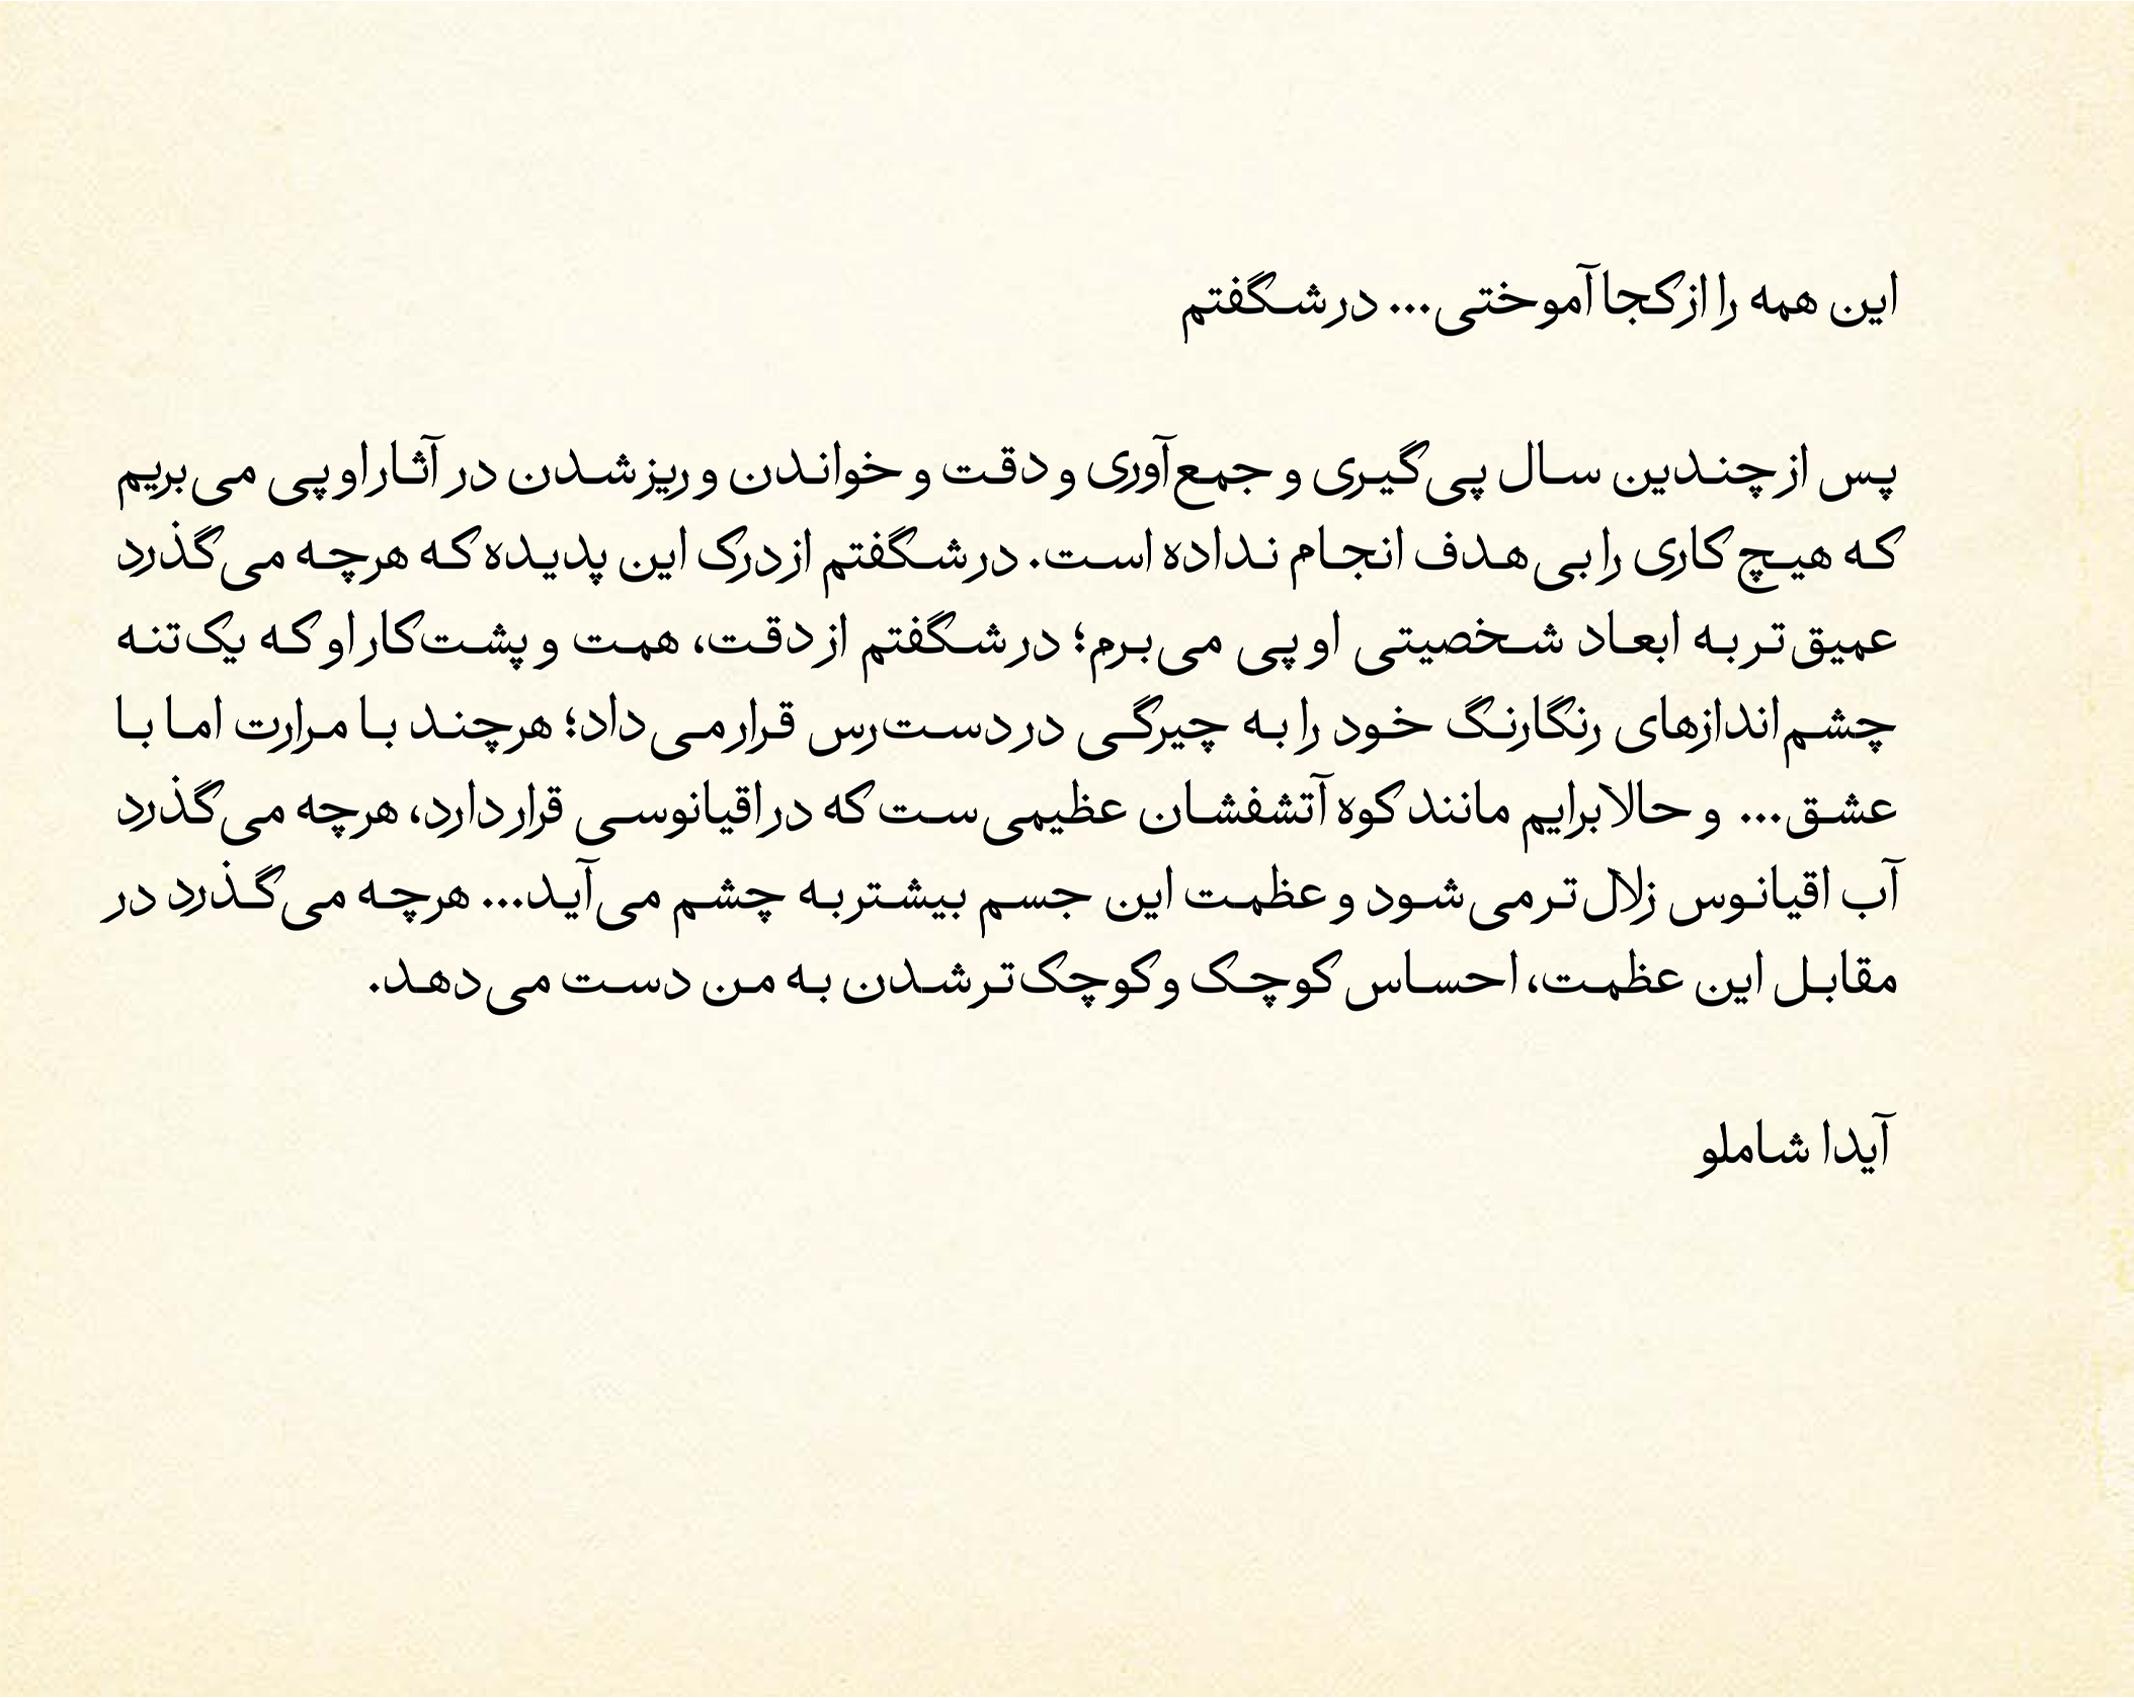 این همه را از کجا آموختی... در شگفتم
پس از چندین سال پی‌گیری و جمع‌آوری و دقت و خواندن و ریز شدن در آثار او پی می‌بریم
که هیچ کاری را بی‌هدف انجام نداده است. در شگفتم از درک این پدیده که هرچه می‌گذرد
عمیق‌تر به ابعاد شخصیتی او پی می‌برم؛ در شگفتم از دقت، همت و پشت‌کار او که یک‌تنه
چشم‌اندازهای رنگارنگ خود را به چیرگی در دست‌رس قرار می‌داد؛ هرچند با مرارت اما با
عشق... و حالا برایم مانند کوه آتشفشان عظیمی‌ست که در اقیانوسی قرار دارد، هرچه می‌گذرد
آب اقیانوس زلال‌تر می‌شود و عظمت این جسم بیشتر به چشم می‌آید... هرچه می‌گذرد در
مقابل این عظمت، احساس کوچک و کوچک‌تر شدن به من دست می‌دهد.
آیدا شاملو